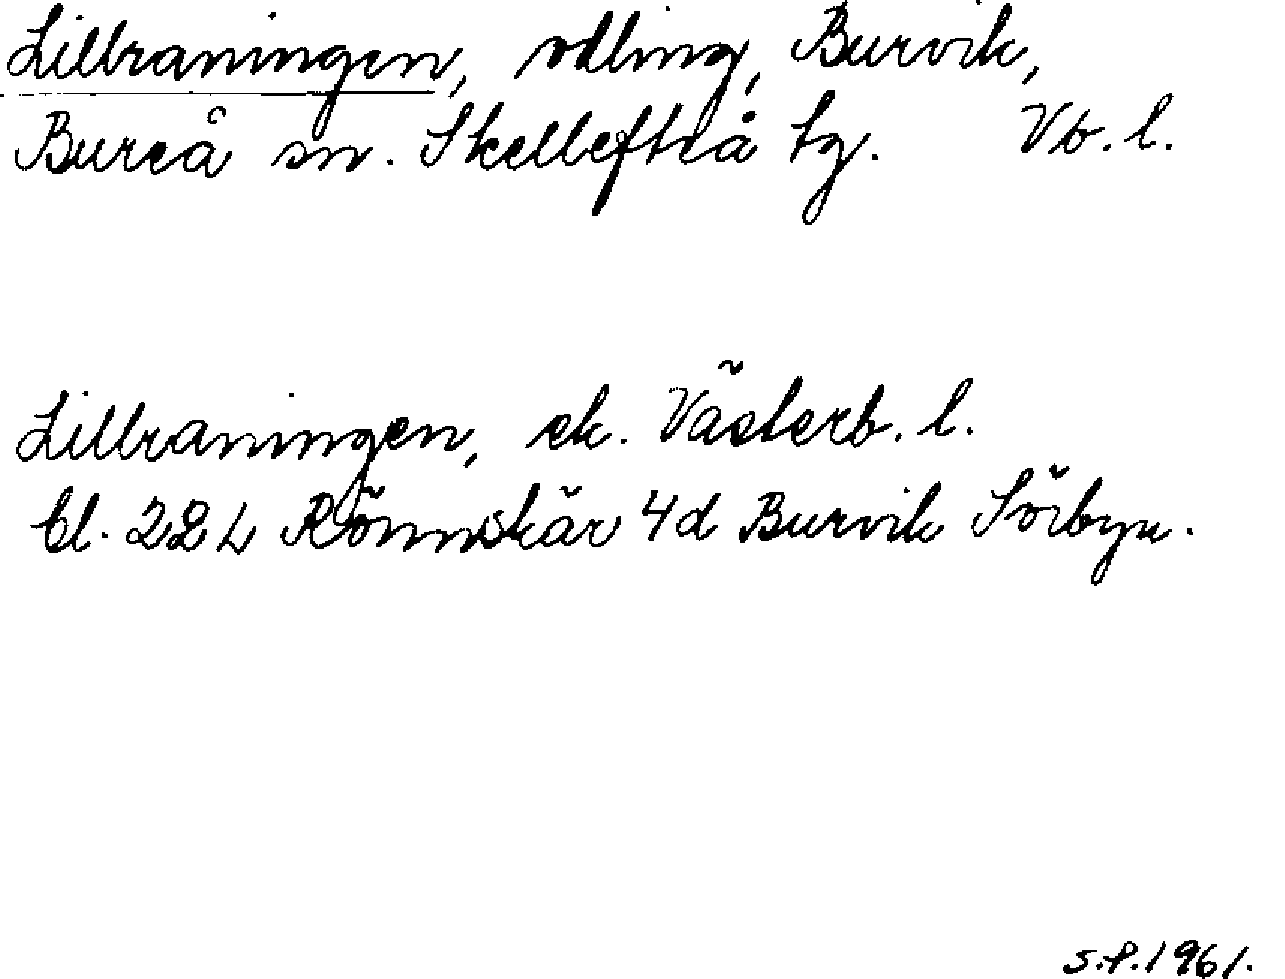 Lillraningen, odling, Burvik,
Bureå sn. Skellefteå tg. Vb. l.
Lillraningen, ek. Västerb. l.
bl. 22 L Rönnskär 4d Burvik Sörbyn.
S.P. 1961.